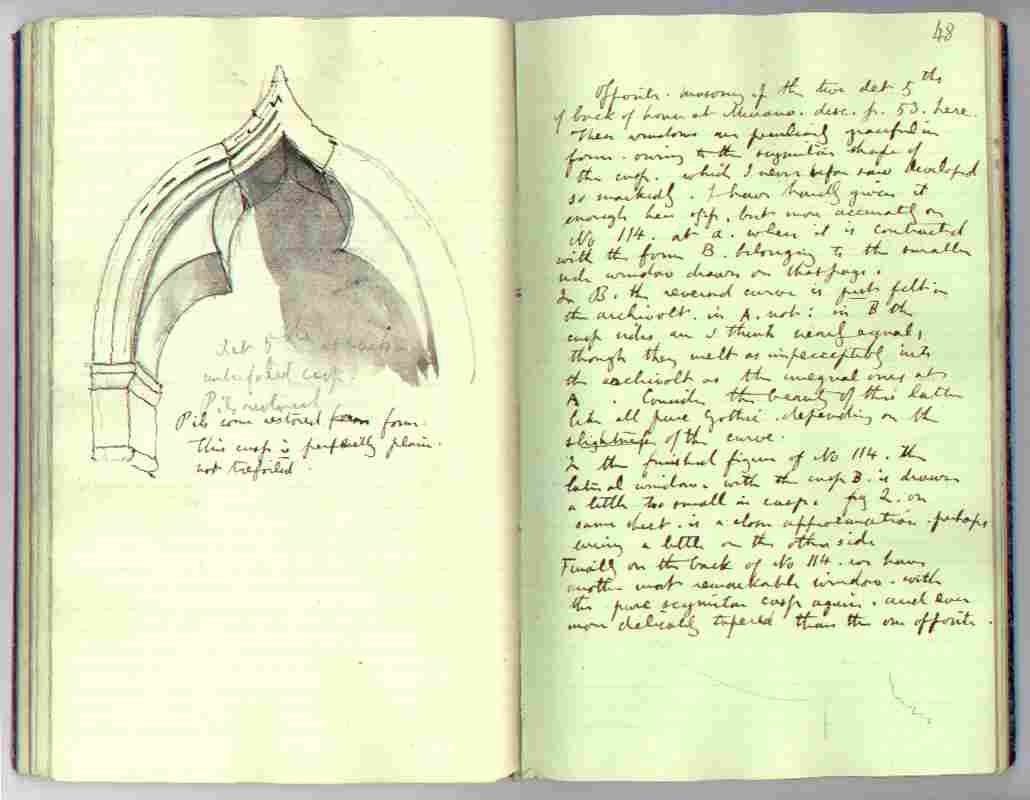 Det 5th
untrefoiled cusp.
Pils restored
Pils come restored from form.
This cusp is perfectly plain.
not trefoiled.
48
Opposite. masonry of the two det 5ths
of back of house at Murano. desc. p. 53. here.
These windows are peculiarly graceful in
form. owing to the scymitar shape of
the cusp. which I never before saw developed
so markedly. I have hardly given it
enough here opp, but more accurately on
No 114. at a. where it is contrasted
with the form B. belonging to the smaller
side window drawn on that page.
In B. the reversed curve is just felt in
the archivolt. in A. not: in B the
cusp sides are I think nearly equal,
though they melt as imperceptibly into
the archivolt as the unequal ones at
A. Consider the beauty of this latter
like all pure Gothic depending on the
slightness of the curve.
In the finished figure of No 114. the
lateral window. with the cusp B. is drawn
a little too small in cusp. fig 2. on
same sheet. is a close approximation. perhaps
erring a little on the other side
Finally on the back of No 114. we have
another most remarkable window. with
the pure scymitar cusp again. and even
more delicately tapered than the one opposite.